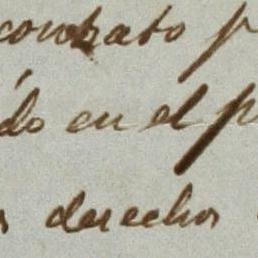 contrato p
do en el p
s derechos